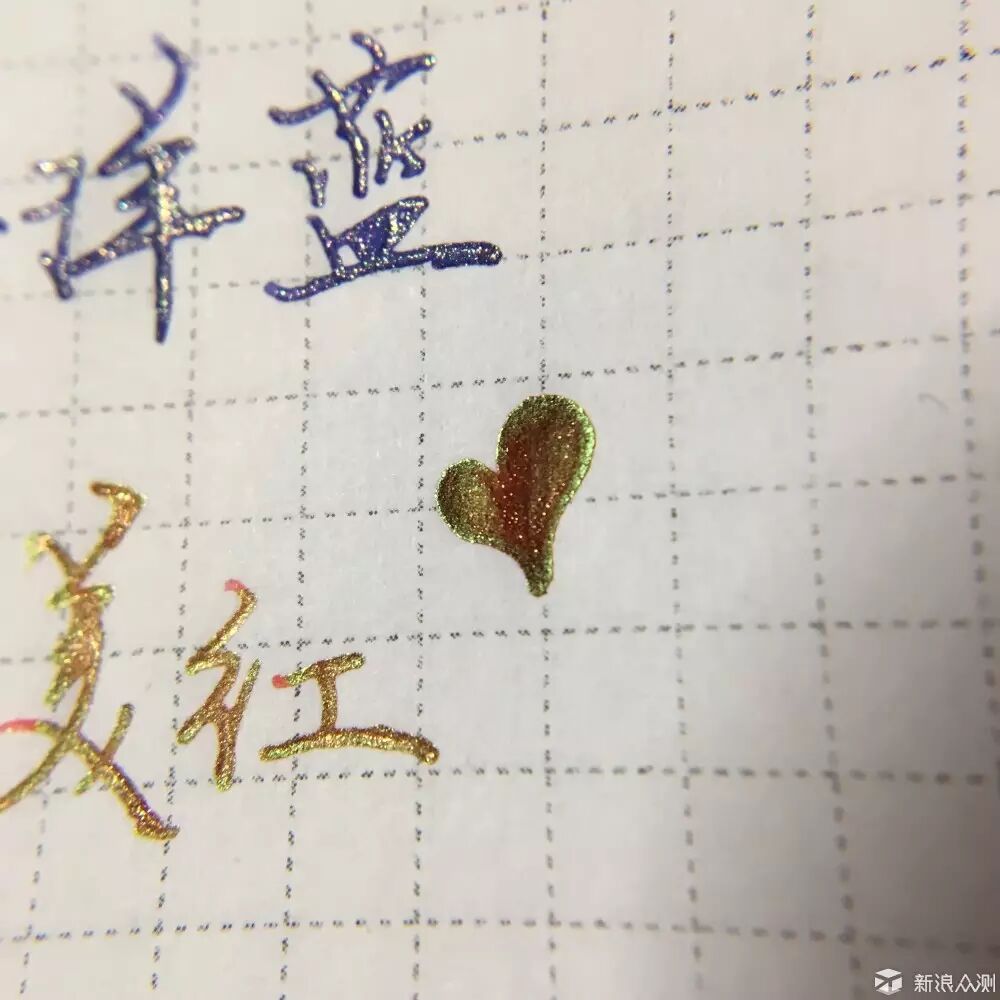 洋蓝
美红
新浪众测